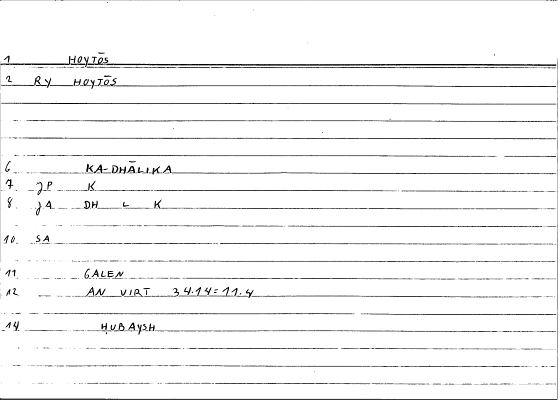 1 HOYTŌS
2 RY HOYTŌS
6 KA-DHĀLIKA
7 JP K
8 JA DH L K
10 SA
11 GALEN
12 AN VIRT 34.14=11.4
14 ḤUBAYSH